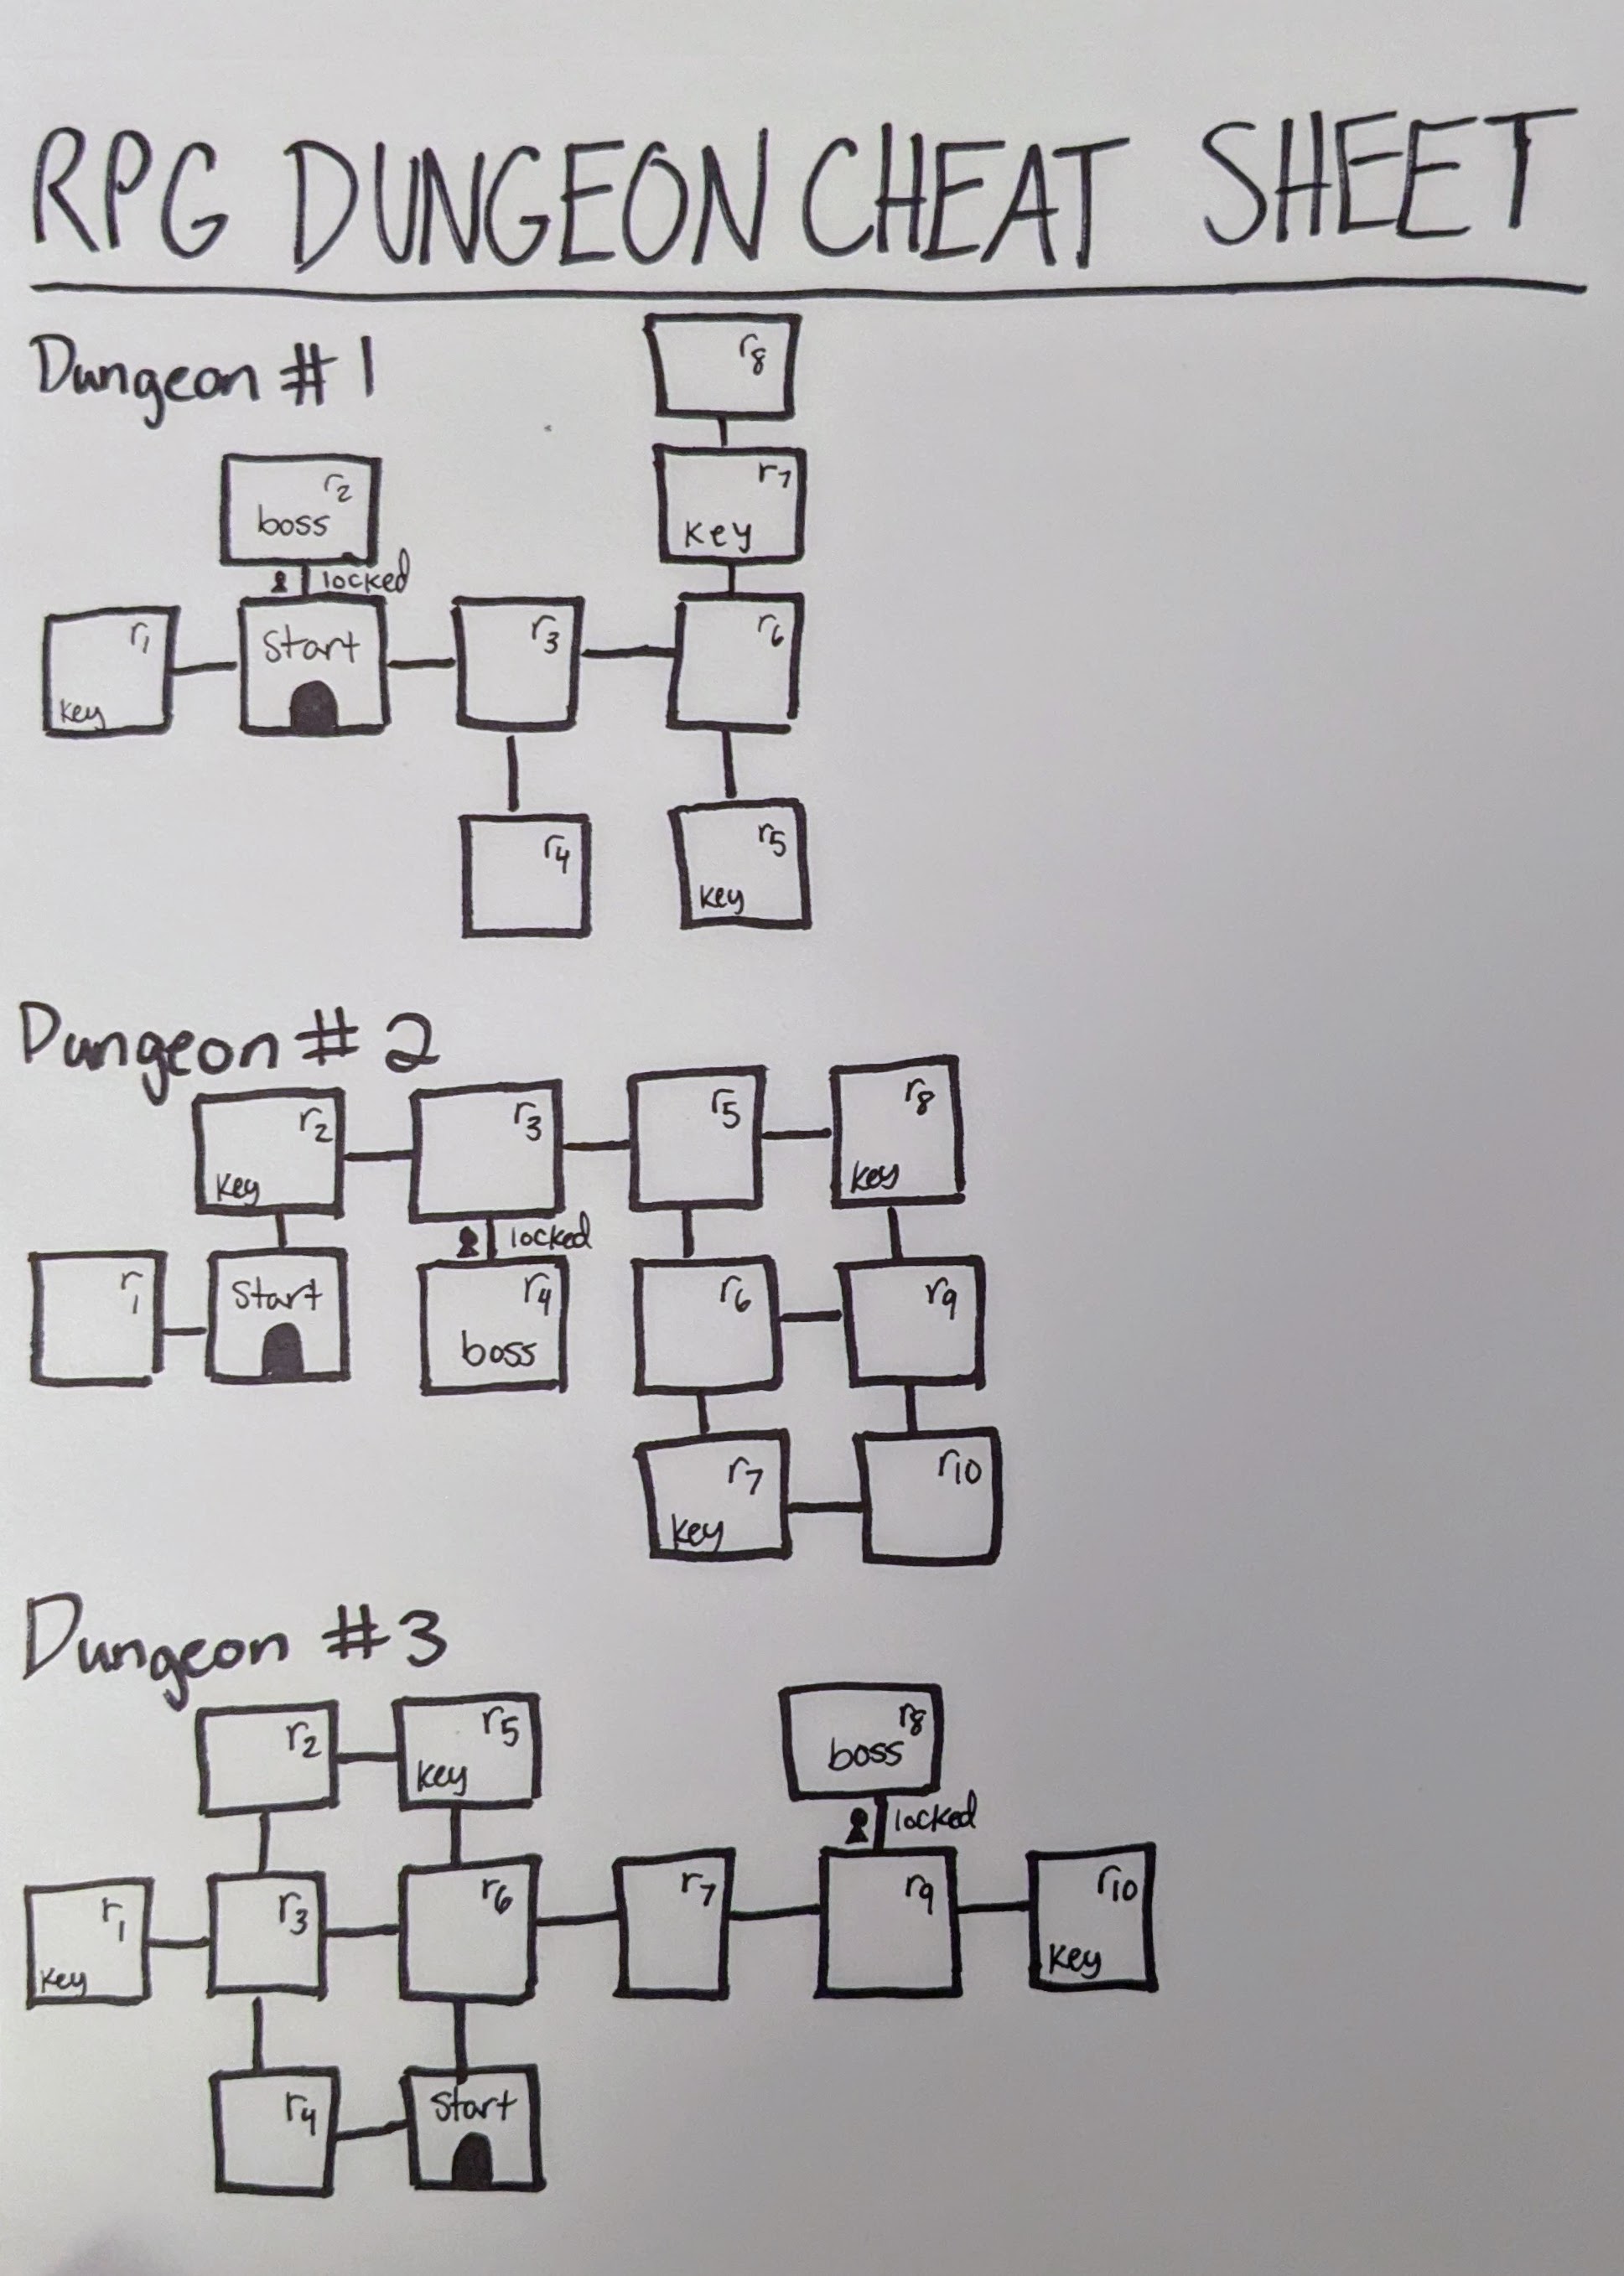 RPG DUNGEON CHEAT SHEET
Dungeon #1
r8
r2
boss
r7
key
locked
r1
key
Start
r3
r6
r4
r5
key
Dungeon #2
r2
key
r3
r5
r8
key
locked
r1
Start
r4
boss
r6
r9
r7
key
r10
Dungeon #3
r2
r5
key
r8
boss
locked
r1
key
r3
r6
r7
r9
r10
key
r4
Start